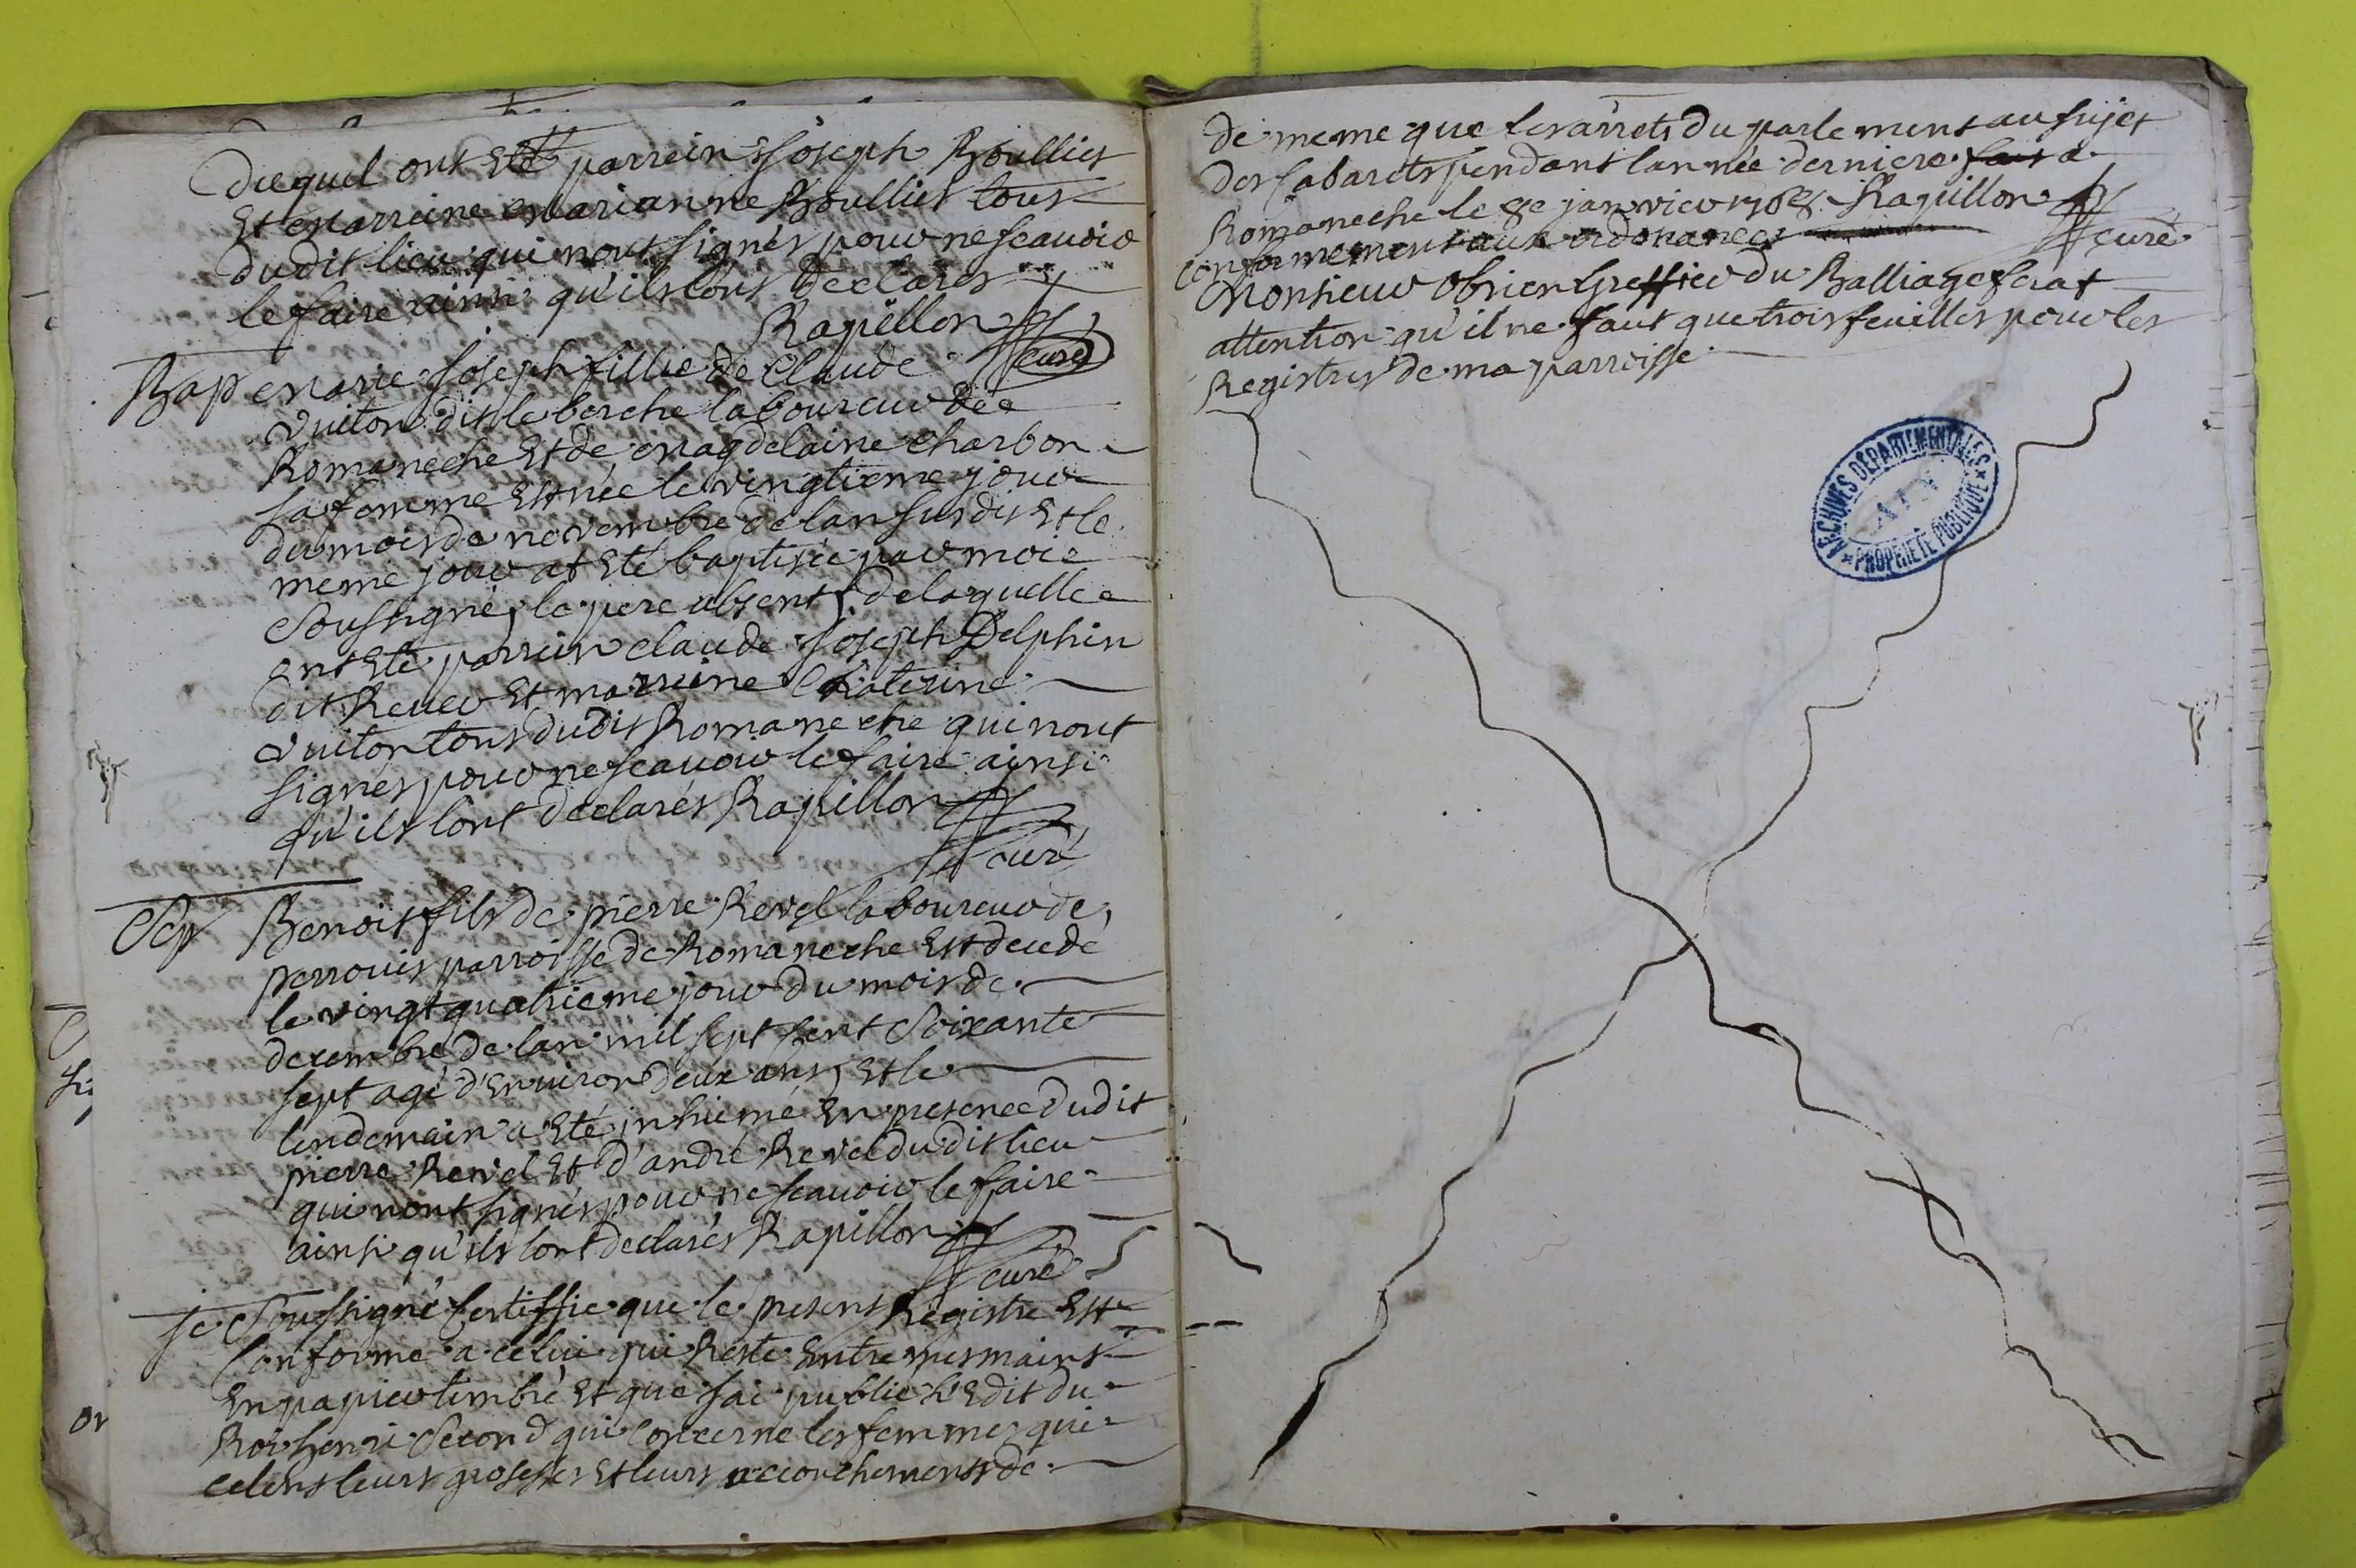 duquel ont Eté parrein Joseph Roulliet
Et marreine marianne Roulliet tous
dudit lieu qui nont signés pour ne scauoir
le faire ainsi qu'ils lont declarés
Rapillon
curé
Bap marie joseph fillie de Claude
vuiton dit le berche laboureur de
Romaneche Et de magdelaine charbon
sa femme Est née le vingtieme jour
du mois de novembre de lan susdit Et le
meme jour at Eté baptisée par moi
Soussigné, le pere absent, de laquelle
ont Eté parrein claude joseph Delphin
dit Reuer Et marreine Caterine
vuiton tous dudit Romaneche qui nont
signés pour ne scauoir le faire ainsi
qu'ils lont declarés Rapillon
curé
Sep Benoit fils de pierre Revel laboureur de
perrouis parroisse de Romaneche Est decedé
le vingt quatrieme jour du mois de
decembre de lan mil sept sent Soixante
sept agé d'Environ deux ans, Et le
lendemain a Eté inhumé En presence dudit
pierre Revel Et d'andré Revel dudit lieu
qui nont signés pour ne scauoir le faire
ainsi qu'ils lont declarés Rapillon
curé
je Soussigné Certiffie que le present Registre Est
Conforme a celui qui Reste Entre mes mains
En papier timbré Et que jai publié l'Edit du
Roi henri Second qui Concerne les femmes qui
celent leurs grosesses Et leurs accouchements de
de meme que les arrets du parlement au sujet
des Cabarets pendant lannée derniere fait a
Romaneche le 8e janvier 1768 Rapillon
curé
Conformement aux ordonances
Monsieur Obrier Greffier du Balliage ferat
attention qu'il ne faut que trois feuilles pour les
Registres de ma parroisse
ARCHIVES DÉPARTEMENTALES
AIN
PROPRIÉTÉ PUBLIQUE